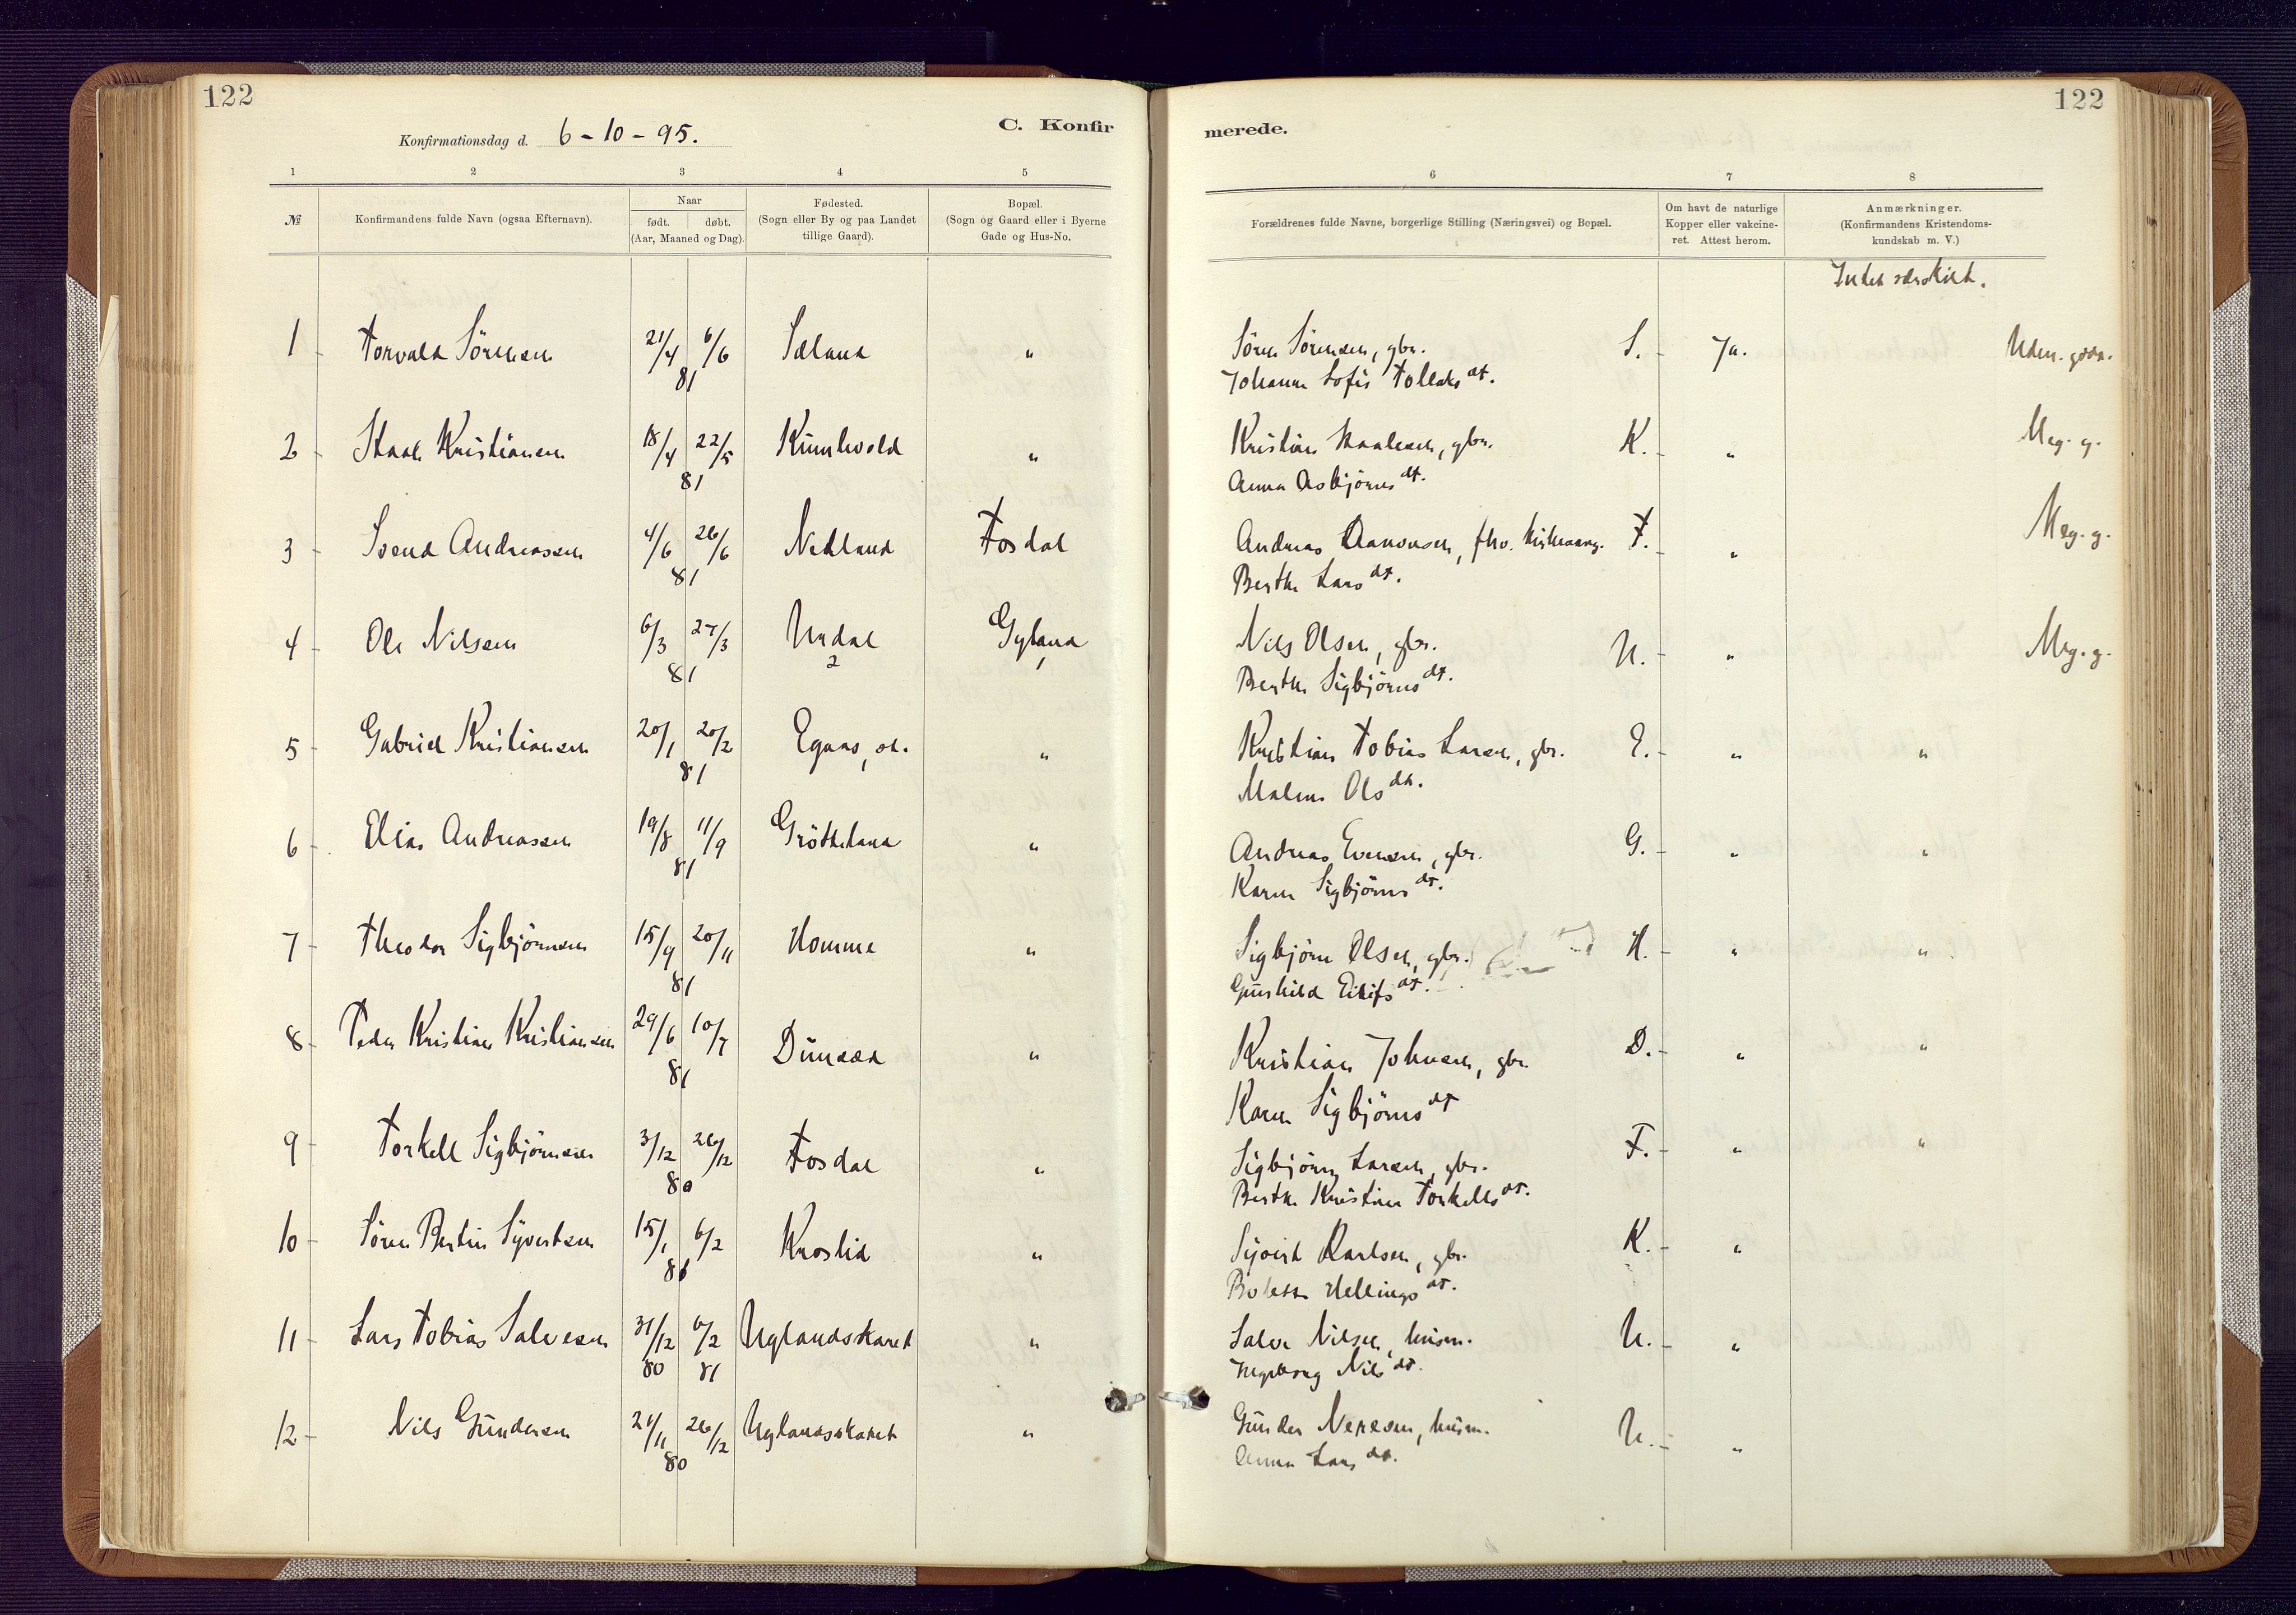 122
122
Konfirmationsdag d. 6 - 10 - 95.
C. Konfir
merede.
1 2 3 4 5 6 7 8
№
Konfirmandens fulde Navn (ogsaa Efternavn).
Naar
født. døbt.
(Aar, Maaned og Dag).
Fødested.
(Sogn eller By og paa Landet
tillige Gaard).
Bopæl.
(Sogn og Gaard eller i Byerne
Gade og Hus-No.
Forældrenes fulde Navne, borgerlige Stilling (Næringsvei) og Bopæl.
Om havt de naturlige
Kopper eller vakcine-
ret. Attest herom.
Anmærkninger.
(Konfirmandens Kristendoms-
kundskab m. V.)
Intet særskilt.
1 - Torvald Sörensen 21/4 6/6 Sæland " Sören Sörensen, gbr. S. - Ja.
81
Johanne Sofie Tollaks dt.
2 - Staale Kristiansen 18/4 22/5 Kumlevold " Kristian Staalesen, gbr. K. - " Meg. g.
81
Anna Asbjörns dt.
3 - Svend Andreassen 4/6 26/6 Nedland Fosdal Andreas Aanonsen, F. - " Meg. g.
81
Berthe Lars dt.
4 - Ole Nilsen 6/3 27/3 Undal Gyland Nils Olsen, gbr. U. - " Meg. g.
81 2 1
Berthe Sigbjörns dt.
5 - Gabriel Kristiansen 20/1 20/2 Egaas, " Kristian Tobias Larsen, gbr. E. - " "
81
Malene Ols dt.
6 - Elias Andreassen 19/8 11/9 Grötteland " Andreas Evensen, gbr. G. - " "
81
Karen Sigbjörns dt.
7 - Theodor Sigbjörnsen 15/9 20/11 Homme " Sigbjörn Olsen, gbr. H. - " "
81
Gunhild Eilifs dt.
8 - Peder Kristian Kristiansen 29/6 10/7 Dunsæd " Kristian Johnsen, gbr. D. - " "
81
Karen Sigbjörns dt
9 - Torkell Sigbjörnsen 3/12 26/12 Fosdal " Sigbjörn Larsen, gbr. F. - " "
80
Berthe Kristine Torkells dt.
10 - Sören Bertin Syvertsen 15/1 6/2 Kroslid " Syvert Karlsen, gbr. K. - "
81
Bolette Hellings dt.
11 - Lars Tobias Salvesen 31/12 6/2 Uglandsskaret " Salve Nilsen, husm. U. - "
80 81
Ingeborg Nils dt.
12 - Nils Gundersen 24/11 26/12 Uglandsskaret " Gunder husm. U. - "
80
Anna Lars dt.